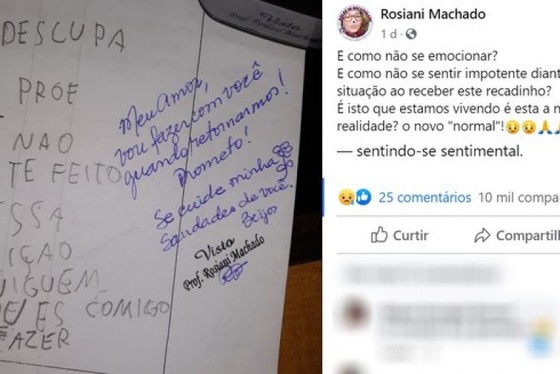 DESCUPA
PROE
NAO
TE FEITO
ESSA
IÇÃO
NIGUEM
ES COMIGO
AZER
Visto
Prof. Rosiani Machado
Meu Amor,
vou fazer com você
quando retornarmos!
Prometo!
Se cuide minha
Saudades de você.
Beijos
Visto
Prof. Rosiani Machado
Rosiani Machado
1 d
E como não se emocionar?
E como não se sentir impotente diant
situação ao receber este recadinho?
É isto que estamos vivendo é esta a n
realidade? o novo "normal"!
— sentindo-se sentimental.
25 comentários 10 mil compa
Curtir Compartil